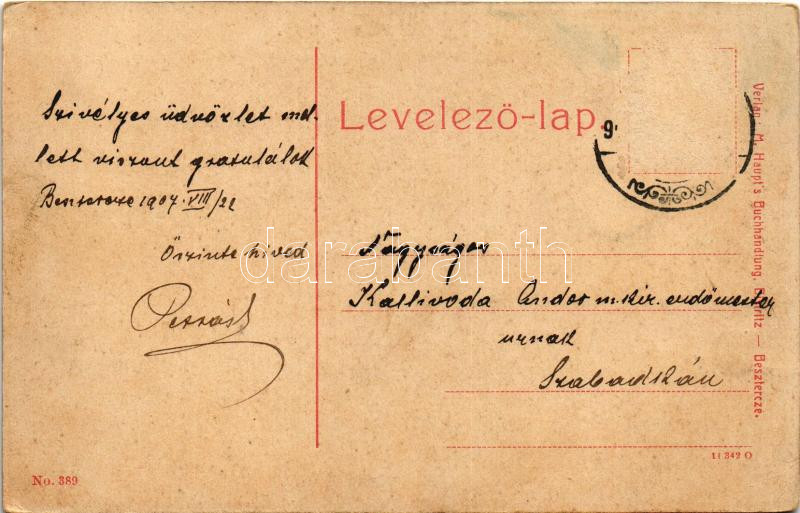 Szivélyes üdvözlet mel-
lett viszont gratulálok
Besztercze 1907 VIII/22
Őszinte hived
Levelező-lap.
9
Nagyságos
Kallivoda Andor m. kir. erdőmester
urnak
Szabadszállás
Verlag: M. Haupt's Buchhandlung, Bistritz — Besztercze.
11342 O
No. 389
darabanth